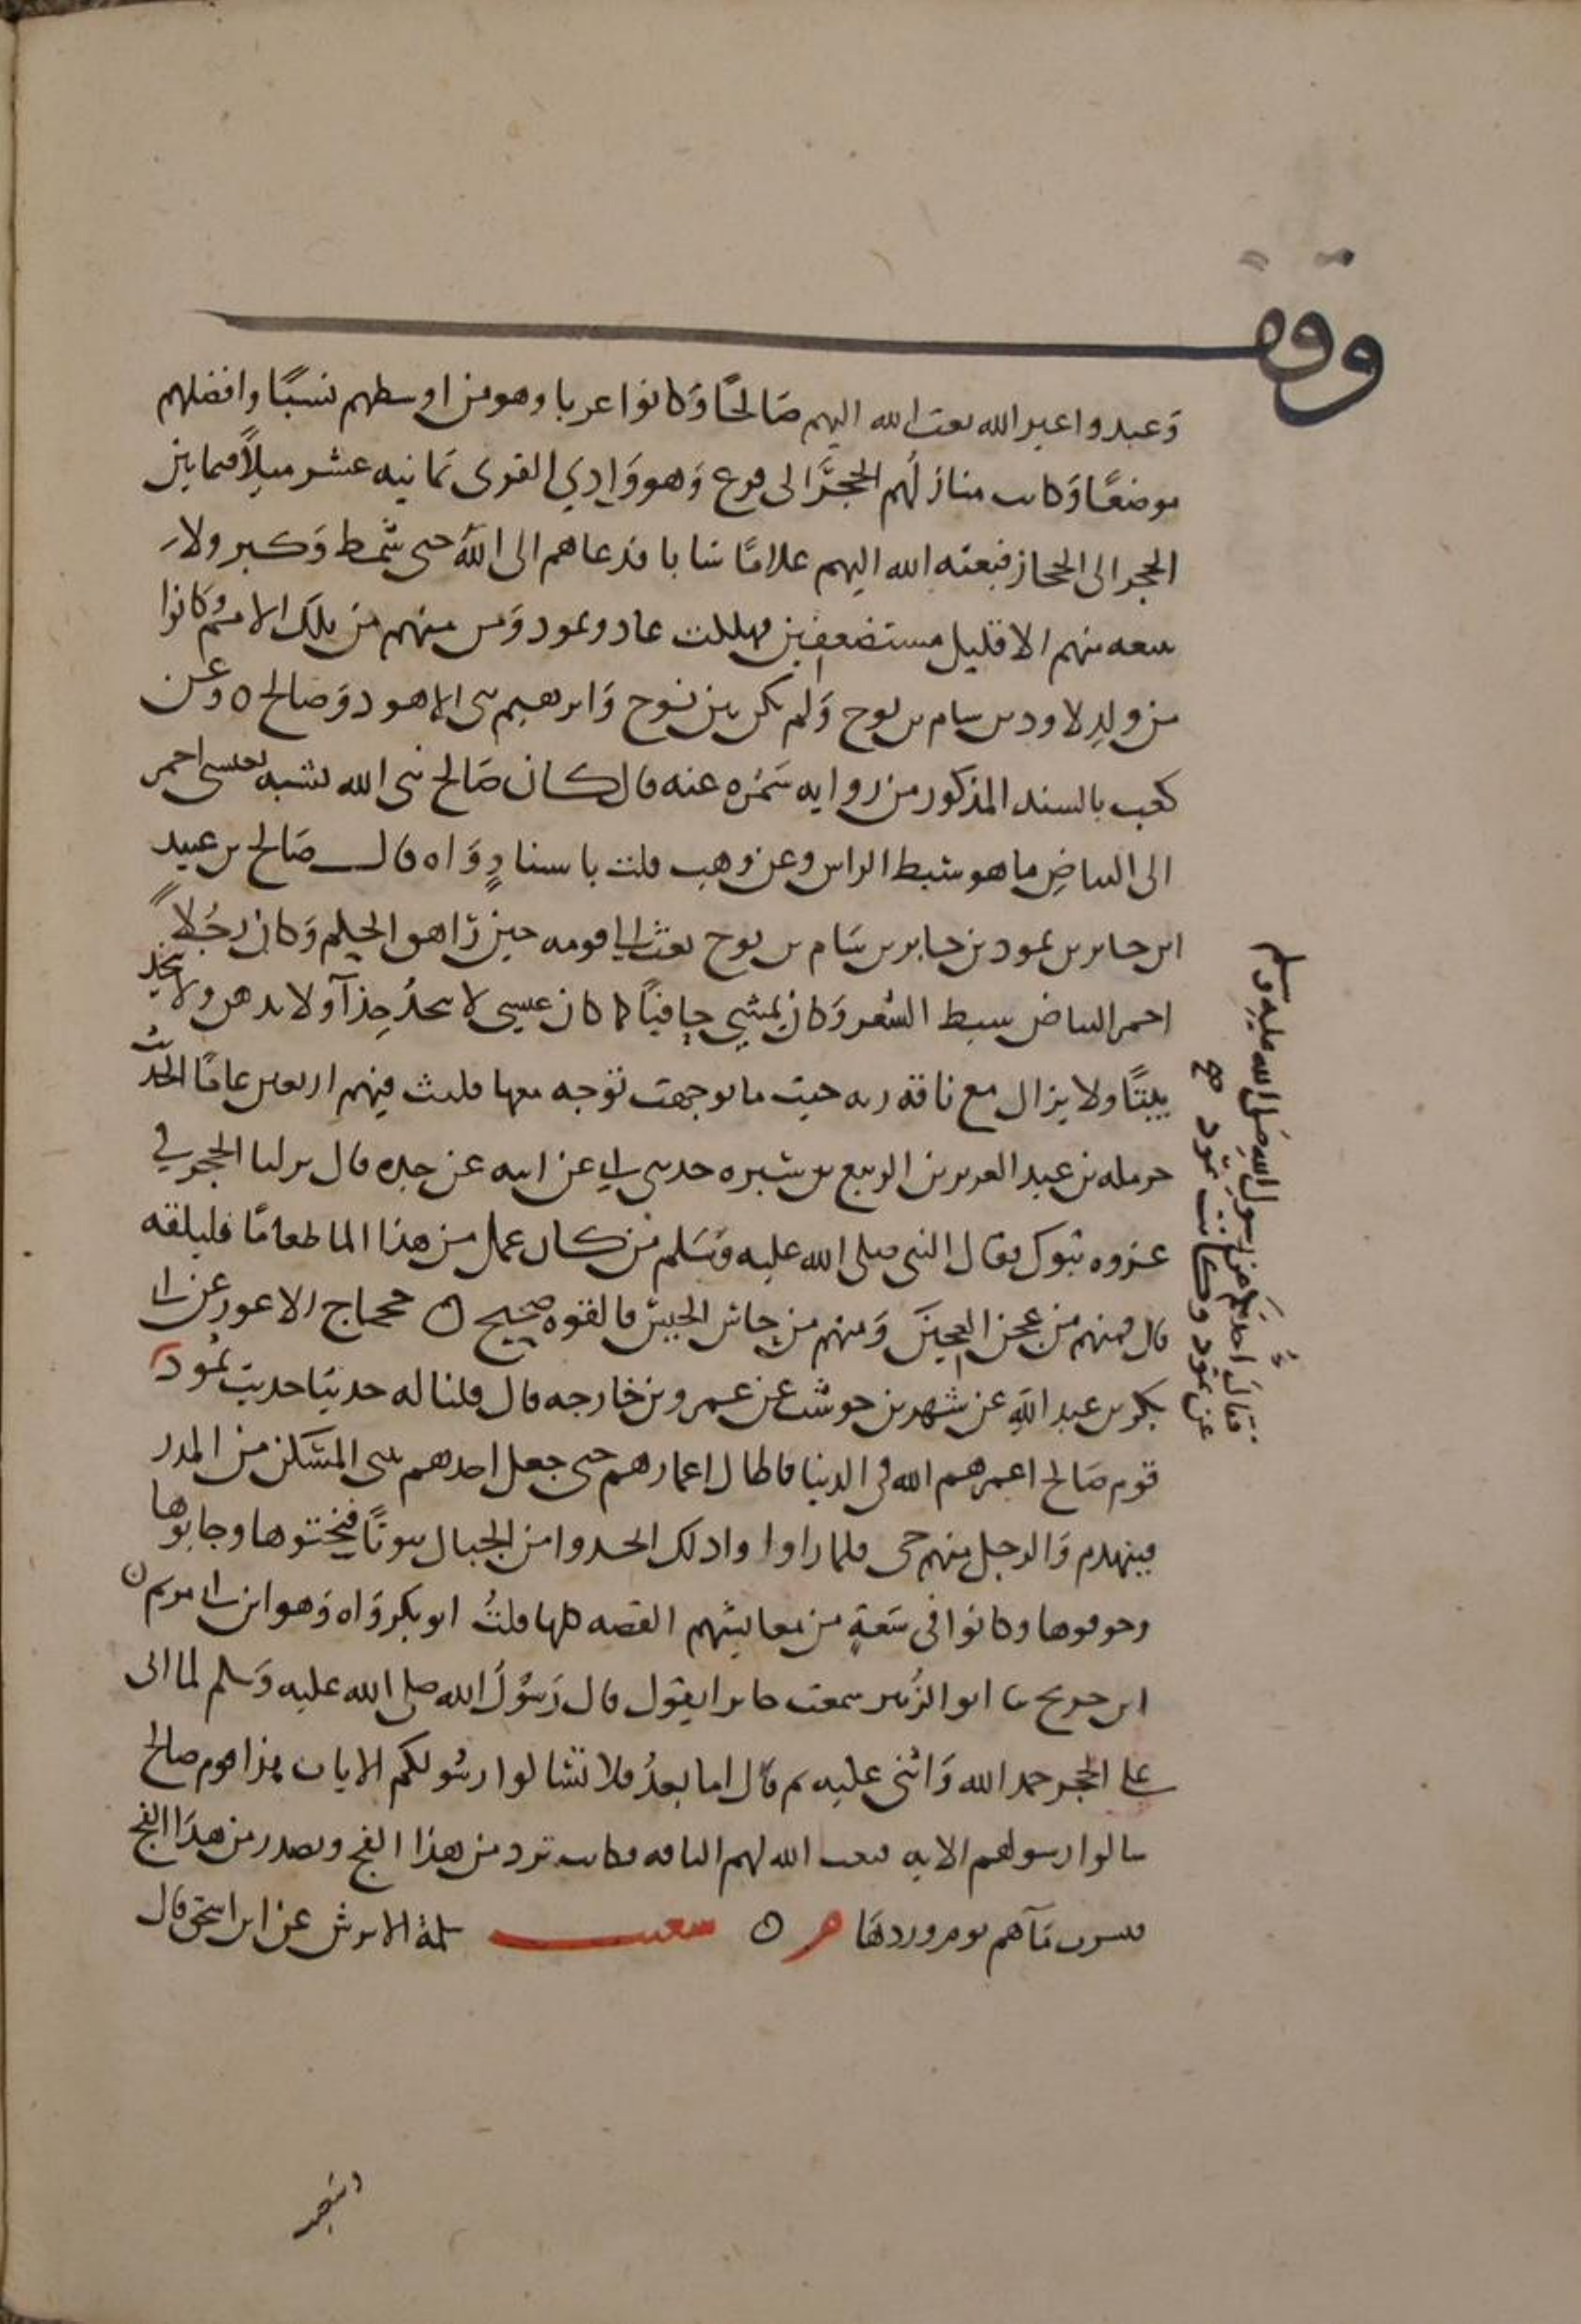 وقف
وَعبدوا غير الله بعث الله اليهم صَالحًا وَكانوا عربا وهو من اوسطهم نسبًا وافضلهم
موضعًا وَكانت منازلهم الحجر الى قرح وَهو وَادي القرى ثمانيه عشر ميلاً فيما بين
الحجر الى الحجاز فبعثه الله اليهم غلامًا شابا فدعاهم الى الله حتى شمط وَكبر ولا
معه منهم الا قليل مستضعفين فهلكت عاد وثمود وَمن منهم من تلك الامم وكانوا
من ولد لاود بن سام بن نوح وَلم يكن بين نوح وَابرهيم نبى الا هود وَصالح ٥ وعن
كعب بالسند المذكور من روايه سَمُره عنه قال كان صَالح نبى الله يشبه بعيسى احمر
الى البياضِ ما هو سبط الراس وعن وهب قلت باسنادٍ وَاه قال صَالح بن عبيد
ابن جابر بن ثمود بن جابر بن سَام بن نوح بعث الى قومه حين رَاهق الحلم وَكان رجُلاً
احمر البياض سبط الشعر وَكان يمشي حافيًا كما كان عيسى لا يتخذُ حِذآ ولا يدهن ولا يتخذ
بيتًا ولا يزال مع ناقة ربه حيث ما توجهت توجه معها فلبث فيهم اربعين عامًا الحديث
حرمله بن عبد العزيز بن الربيع بن سبره حدثني ابي عن ابيه عن جده قال نزلنا الحجر في
غزوه تبوك فقال النبي صلى الله عليه وَسَلم من كان عمل من هذا الما طعامًا فليلقه
قال فمنهم من عجن العجينَ وَمنهم من حاس الحيس فالقوه صحيح ٥ حجاج الاعور عن ابي
بكر بن عبد اللهِ عن شهر بن حوشب عن عمرو بن خارجه قال قلنا له حدثنا حديث ثمُود
قوم صَالح اعمرهم الله فى الدنيا فاطال اعمارهم حتى جعل احدهم يبنى المسَكن من المدر
فينهدم وَالرجل منهم حى فلما راوا ذلك اتخذوا من الجبال بيوتًا فنحتوها وجابوها
وجوفوها وكانوا فى سَعَةٍ من معايشهم القصه كلها قلتُ ابو بكر وَاه وَهو ابن ابي مريم ن
ابن جريج نا ابو الزُبير سمعت جابرا يقول قال رَسُولُ الله صلى الله عليه وَسلم لما اتى
على الحجر حمد الله وَاثنى عليه ثم قال اما بعدُ فلا تسَالوا رسُولكم الايات هذا قوم صالح
سالوا رسولهم الايه فبعث الله لهم الناقه فكانت ترد من هذا الفج وتصدر من هذَا الفج
فتشرب مَآهم يوم وردهَا ٥ سلمة الابرش عن ابن اسحق قال
فقالَ احدكم من رسول الله صَلى الله عليه وسلم
عن ثمود وكانت ثمود